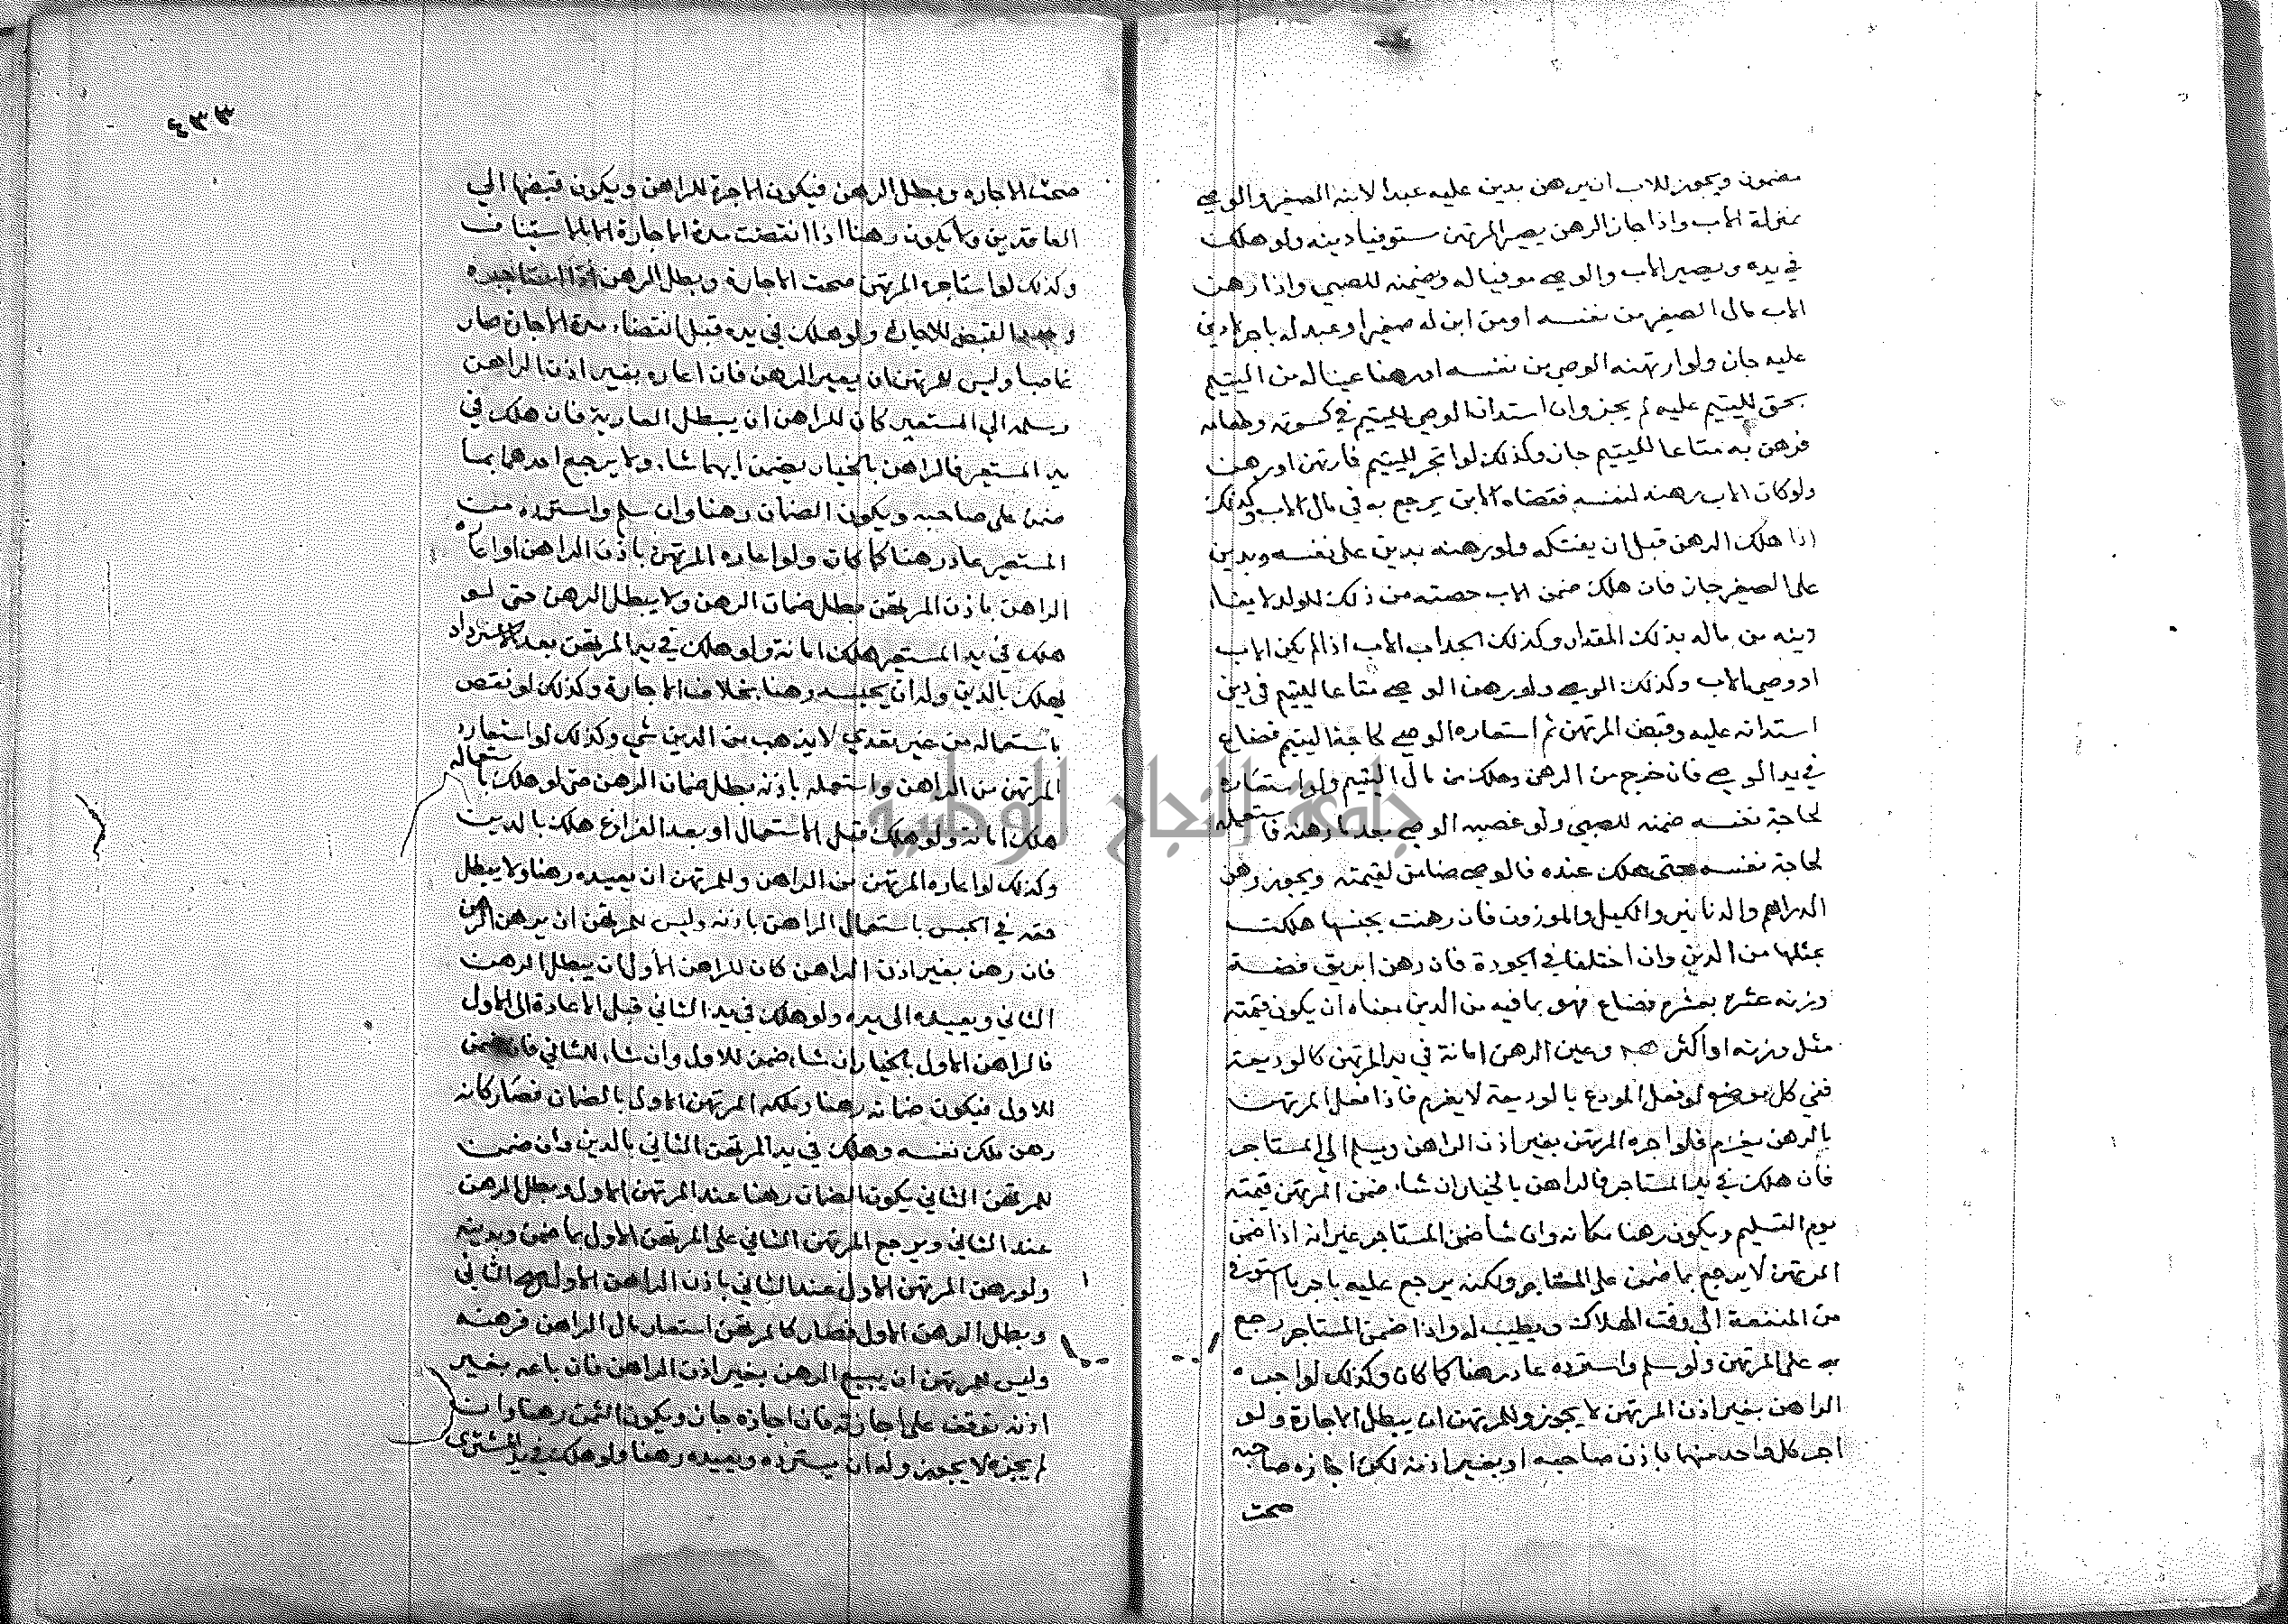 مضمون ويجوز للاب ان يرهن بدين عليه عبدا لابنه الصغير والوصي
بمنزلة الاب واذا جاز الرهن يصير المرتهن مستوفيا دينه ولو هلك
في يده ويصير الاب والوصي موفيا له ويضمنه للصبي واذا رهن
الاب مال الصغير من نفسه او من ابن له صغير او عبد له تاجر لا دين
عليه جاز ولو ارتهنه الوصي من نفسه او رهنا عينا له من اليتيم
بحق لليتيم عليه لم يجز وان استدان الوصي لليتيم في كسوته وطعامه
فرهن به متاعا لليتيم جاز وكذلك لو اتجر لليتيم فارتهن او رهن
ولو كان الاب رهنه لنفسه فقضاه الابن يرجع به في مال الاب وكذلك
اذا هلك الرهن قبل ان يفتكه ولو رهنه بدين على نفسه وبدين
على الصغير جاز فان هلك ضمن الاب حصته من ذلك للولد لايفاء
دينه من ماله بذلك المقدار وكذلك الجد اب الاب اذا لم يكن الاب
او وصي الاب وكذلك الوصي ولو رهن الوصي متاعا لليتيم في دين
استدانه عليه وقبض المرتهن ثم استعاره الوصي لحاجة اليتيم فضاع
في يد الوصي فان خرج من الرهن وهلك من مال اليتيم ولو استعاره
لحاجة نفسه ضمنه للصبي ولو غصبه الوصي بعد ما رهنه فاستعمله
لحاجة نفسه حتى هلك عنده فالوصي ضامن لقيمته ويجوز رهن
الدراهم والدنانير والمكيل والموزون فان رهنت بجنسها هلكت
بمثلها من الدين وان اختلفا في الجودة فان رهن ابريق فضة
وزنه عشرة بعشرة فضاع فهو بما فيه من الدين معناه ان يكون قيمته
مثل وزنه او اكثر وعين الرهن امانة في يد المرتهن كالوديعة
ففي كل موضع لو فعل المودع بالوديعة لا يغرم فاذا فعل المرتهن
بالرهن يغرم فلو اجره المرتهن بغير اذن الراهن ويسلم الى المستاجر
فان هلك في يد المستاجر فالراهن بالخيار ان شاء ضمن المرتهن قيمته
يوم التسليم ويكون رهنا مكانه وان شا ضمن المستاجر غير انه اذا ضمن
المرتهن لا يرجع بما ضمن على المستاجر ولكنه يرجع عليه باجر ما استوفى
من المنفعة الى وقت الهلاك ويطيب له واذا ضمن المستاجر رجع
به على المرتهن ولو سلم واسترده عاد رهنا كما كان وكذلك لو اجره
الراهن بغير اذن المرتهن لا يجوز وللمرتهن ان يبطل الاجارة ولو
اجر كل واحد منهما باذن صاحبه او بغير اذنه لكن اجازه صاحبه
صحت
٣٣٤
صحت الاجاره وبطل الرهن فيكون الاجرة للراهن ويكون قبضها الى
العاقدين ولا يكون رهنا اذا انقضت مدة الاجارة الا بالاستيناف
وكذلك لو استاجره المرتهن صحت الاجارة وبطل الرهن
القبض للاجارة ولو هلك في يده قبل انقضاء مدة الاجارة صار
غاصبا وليس للمرتهن ان يعير الرهن فان اعاره بغير اذن الراهن
وسلمه الى المستعير كان للراهن ان يبطل العارية فان هلك في
يد المستعير فالراهن بالخيار يضمن ايهما شاء ولا يرجع احدهما بما
ضمن على صاحبه ويكون الضمان رهنا وان سلم واسترده من
المستعير عاد رهنا كما كان ولو اعاره المرتهن باذن الراهن او اعاره
الراهن باذن المرتهن يبطل ضمان الرهن ولا يبطل الرهن حتى لو
هلك في يد المستعير هلك امانة ولو هلك في يد المرتهن بعد الاسترداد
يهلك بالدين وله ان يحبسه رهنا بخلاف الاجارة وكذلك لو نقص
باستعماله من غير تعدي لا يذهب من الدين شي وكذلك لو استعاره
المرتهن من الراهن واستعمله باذنه بطل ضمان الرهن حتى لو هلك باستعماله
هلك امانة ولو هلك قبل الاستعمال او بعد الفراغ هلك بالدين
وكذلك لو اعاره المرتهن من الراهن وللمرتهن ان يعيده رهنا ولا يبطل
حقه في الحبس باستعمال الراهن باذنه وليس للمرتهن ان يرهن الرهن
فان رهن بغير اذن الراهن كان للراهن الاول ان يبطل الرهن
الثاني ويعيده الى يده ولو هلك في يد الثاني قبل الاعادة الى الاول
فالراهن الاول بالخيار ان شاء ضمن للاول وان شاء للثاني فان ضمن
للاول فيكون ضمانه رهنا وملكه المرتهن الاول بالضمان فصار كانه
رهن ملك نفسه وهلك في يد المرتهن الثاني بالدين وان ضمن
للمرتهن الثاني يكون الضمان رهنا عند المرتهن الاول وبطل الرهن
عند الثاني ويرجع المرتهن الثاني على المرتهن الاول بما ضمن وبدينه
ولو رهن المرتهن الاول عند الثاني باذن الراهن الاول الثاني
وبطل الرهن الاول فصار كالمرتهن استعار مال الراهن فرهنه
وليس للمرتهن ان يبيع الرهن بغير اذن الراهن فان باعه بغير
اذنه توقف على اجازته فان اجازه جاز ويكون الثمن رهنا وان
لم يجزه لا يجوز وله ان يسترده ويعيده رهنا ولو هلك في يد المشتري
جامعة النجاح الوطنية